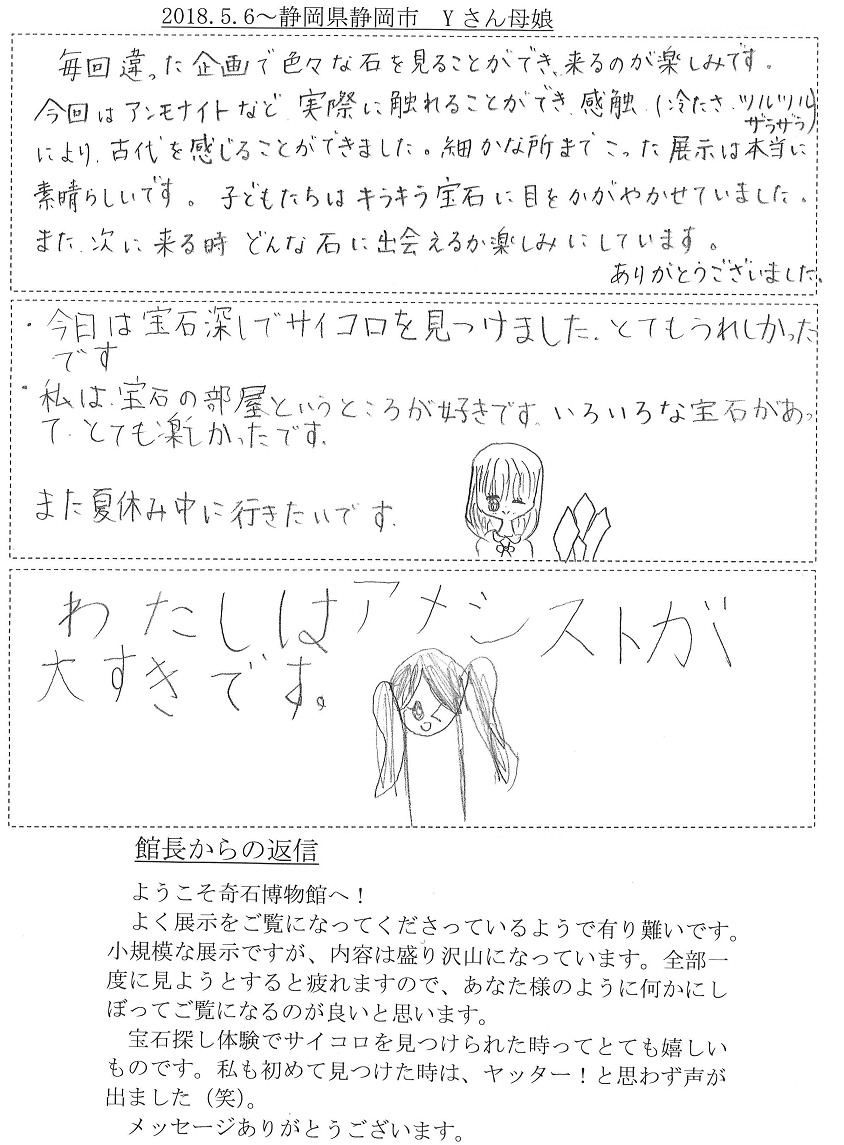 2018.5.6～静岡県静岡市　Yさん母娘
毎回違った企画で色々な石を見ることができ、来るのが楽しみです。
今回はアンモナイトなど、実際に触れることができ、感触（冷たさ、ツルツル
ザラザラ）
により、古代を感じることができました。細かな所までこった展示は本当に
素晴らしいです。子どもたちはキラキラ宝石に目をかがやかせていました。
また、次に来る時どんな石に出会えるか楽しみにしています。
ありがとうございました。
・今日は宝石深しでサイコロを見つけました。とてもうれしかった
です
・私は、宝石の部屋というところが好きです。いろいろな宝石があっ
て、とても楽しかったです。
また夏休み中に行きたいです。
わたしはアメシストが
大すきです。
館長からの返信
ようこそ奇石博物館へ！
よく展示をご覧になってくださっているようで有り難いです。
小規模な展示ですが、内容は盛り沢山になっています。全部一
度に見ようとすると疲れますので、あなた様のように何かにし
ぼってご覧になるのが良いと思います。
宝石探し体験でサイコロを見つけられた時ってとても嬉しい
ものです。私も初めて見つけた時は、ヤッター！と思わず声が
出ました（笑）。
メッセージありがとうございます。